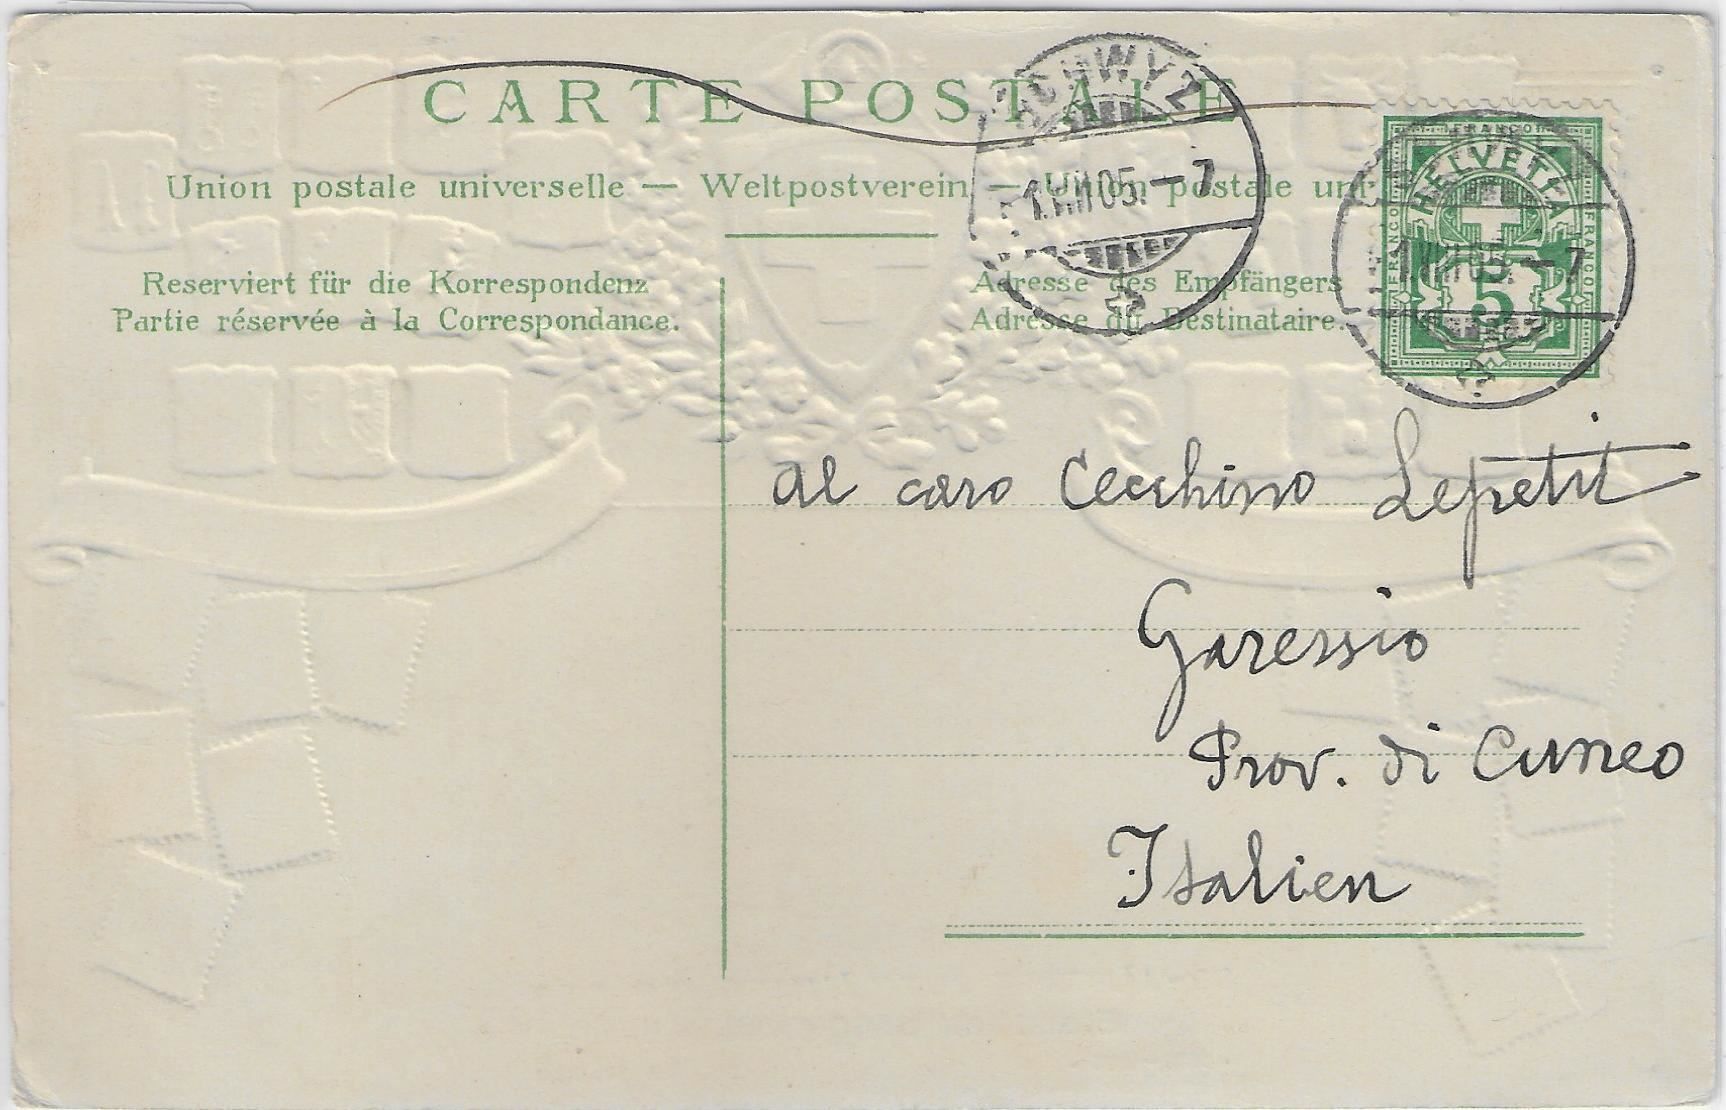 CARTE POSTALE
Union postale universelle — Weltpostverein — Unione postale uni
SCHWYZ
1.VIII.05.—7
FRANCO
HELVETIA
FRANCO
FRANCO
1.VIII.05.—7
5
Reserviert für die Korrespondenz
Partie réservée à la Correspondance.
Adresse des Empfängers
Adresse du Destinataire.
al caro Cecchino Lepetit
Garessio
Prov. di Cuneo
Italien